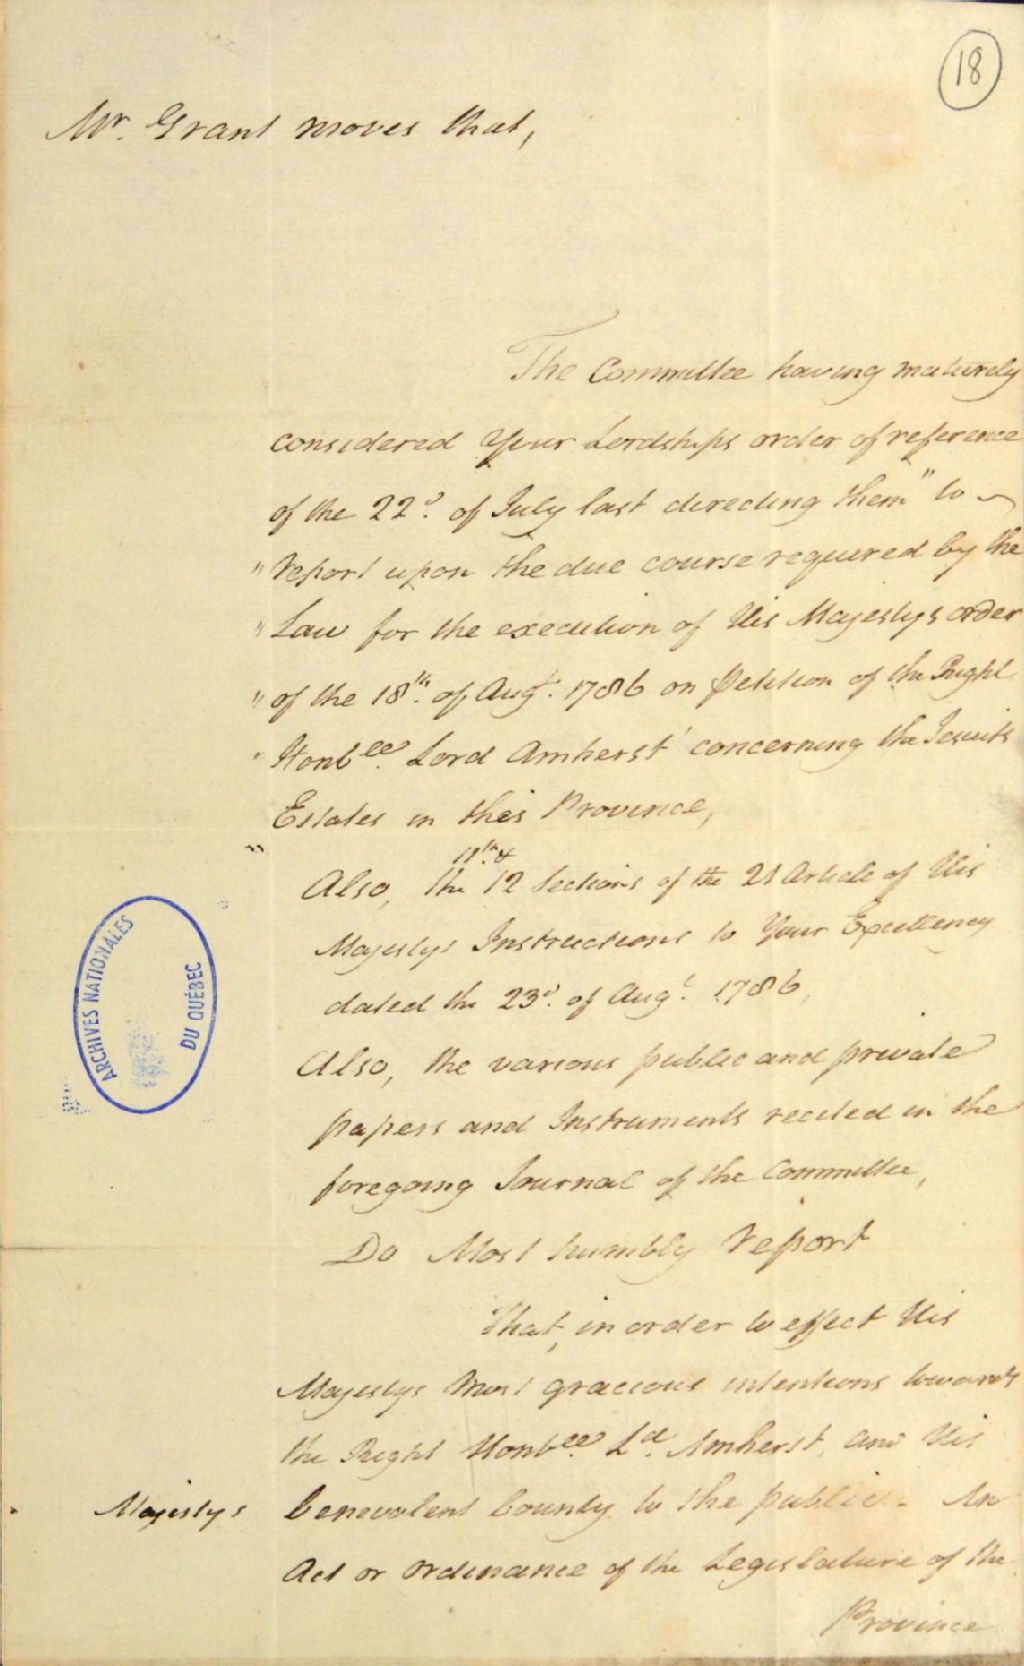 18
Mr. Grant moves that,
The Committee having maturely
considered Your Lordships order of reference
of the 22d. of July last directing them " to
" report upon the due course required by the
" Law for the execution of His Majestys order
" of the 18th. of Augt. 1786 on Petition of the Right
" Honbee. Lord Amherst concerning the Jesuits
Estates in this Province,
11th. &
Also, the 12 Sections of the 21 Article of His
Majestys Instructions to Your Excellency
dated the 23d. of Augt. 1786,
Also, the various public and private
papers and Instruments recited in the
foregoing Journal of the Committee,
Do Most humbly Report
That, in order to effect His
Majestys most gracious intentions towards
the Right Honbee. Ld. Amherst, and His
Majestys benevolent bounty to the public - An
Act or Ordinance of the Legislature of the
Province
ARCHIVES NATIONALES
DU QUÉBEC